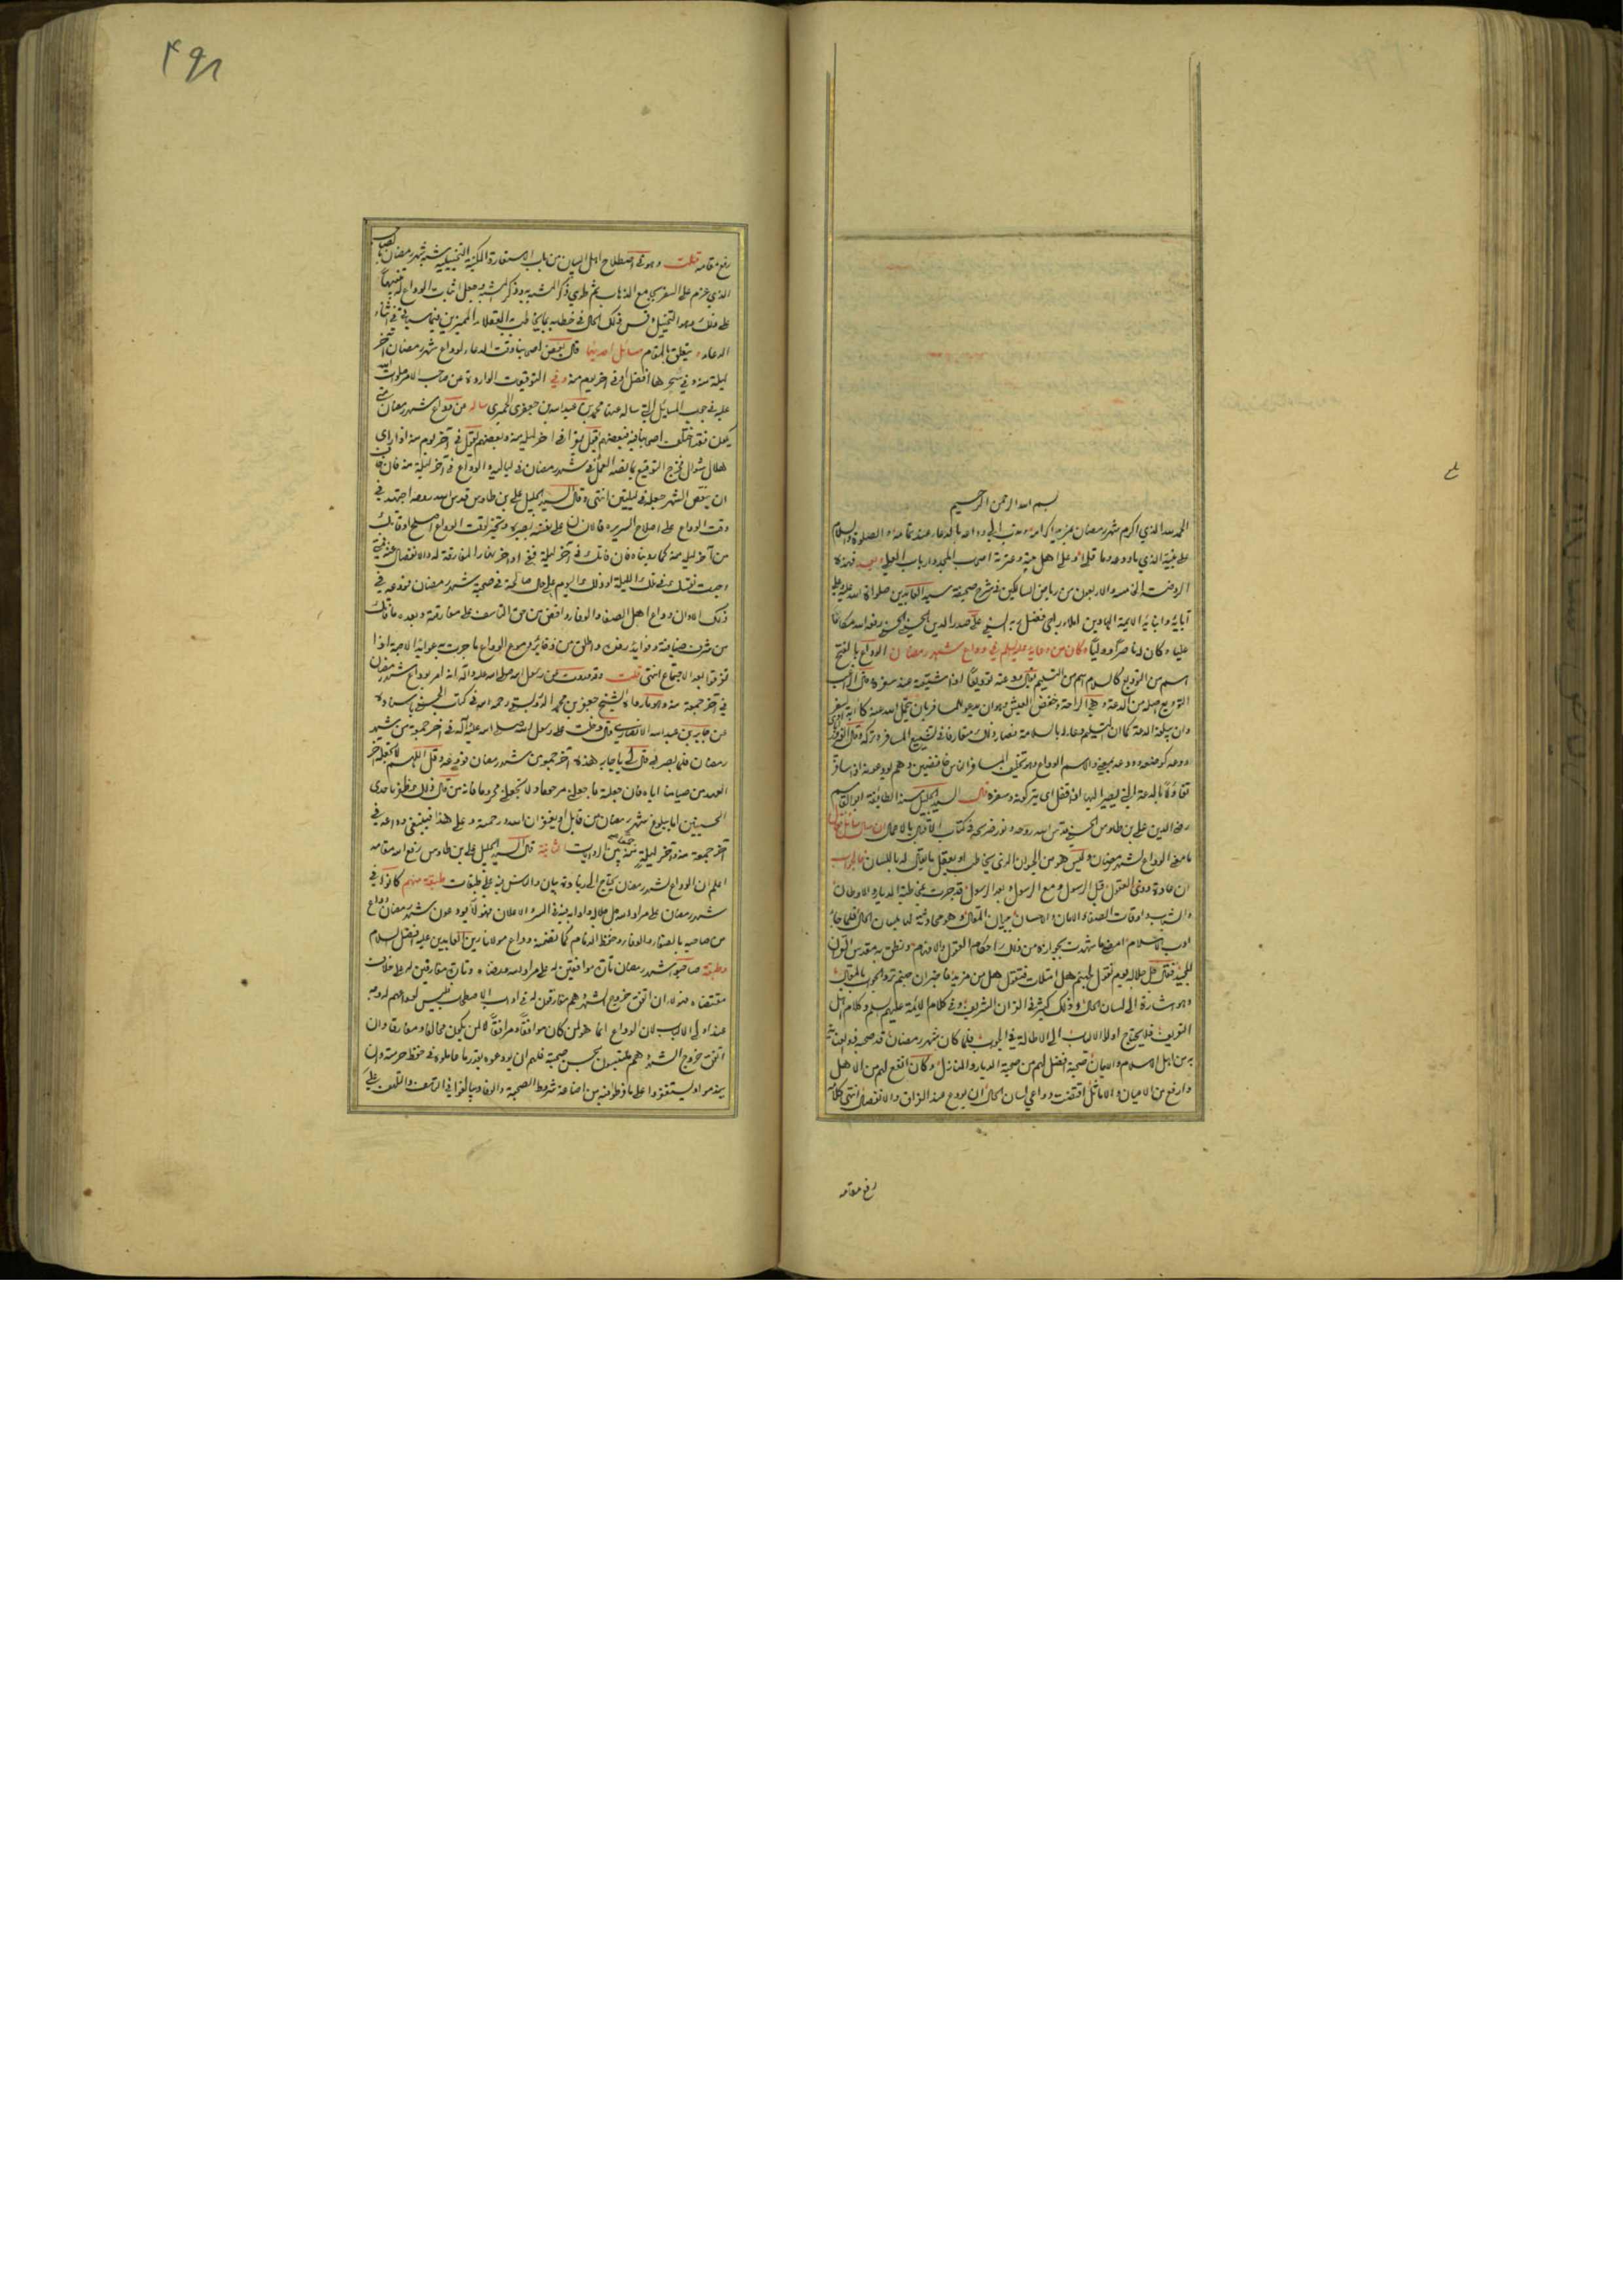 بسم الله الرحمن الرحيم
الحمد لله الذي اكرم شهر رمضان بمزية اكرامه وندب الى وداعه بالدعاء عند تمامه والصلوة والسلام
على نبيه الذي ما ودعه وما قلى وعلى اهل بيته وعترته اصحاب المجد وارباب العلى وبعد فهذه
الروضة الخامسة والاربعون من رياض السالكين في شرح صحيفة سيد العابدين صلوات الله عليه وعلى
آبائه وابنائه الائمة الهادين املاء راجي فضل ربه السني علي صدر الدين الحسيني الحسني رفع الله مكانا
عليا وكان له ناصرا ووليا وكان من دعائه عليه السلم في وداع شهر رمضان الوداع بالفتح
اسم من التوديع كالسلام اسم من التسليم يقال ودعته توديعا اذا شيعته عند سفره قال الراغب
التوديع اصله من الدعة وهي الراحة وخفض العيش وهو ان يدعو للمسافر بان يتحمل الله عنه كآبة السفر
وان يبلغه الدعة كما ان التسليم دعاء له بالسلامة فصار ذلك متعارفا في تشييع المسافر وتركه وقال الفيروزابادي
ودعه كوضعه وودعه بمعنى والاسم الوداع وهو تخليف المسافر الناس خافضين وهم يودعونه اذا سافر
تفاؤلا بالدعة التي يصير اليها اذا قفل اي يتركونه وسفره قال السيد الجليل سند الطائفة ابو القاسم
رضي الدين علي بن طاوس الحسني قدس الله روحه ونور ضريحه في كتاب الاقبال بالاعمال ان سال سائل فقال
ما معنى الوداع لشهر رمضان وليس هو من الحيوان الذي يخاطب او يعقل ما يقال له باللسان فالجواب
ان عادة ذوي العقول قبل الرسول ومع الرسول وبعد الرسول قد جرت بمخاطبة الديار والاوطان
والشباب واوقات الصفاء والامان والاحسان ببيان المقال وهو محادثة لها بلسان الحال فلما جاء
ادب الاسلام امضى ما شهدت بجوازه من ذلك احكام العقول والافهام ونطق به مقدس القرآن
المجيد فقال جل جلاله يوم نقول لجهنم هل امتلات فتقول هل من مزيد فاخبر ان جهنم ترد الجواب بالمقال
وهو اشارة الى لسان الحال وذلك كثير في القرآن الشريف وفي كلام الائمة عليهم السلم وكلام اهل
التعريف فلا يحتاج اولو الالباب الى الاطالة في الجواب فلما كان شهر رمضان قد صحبه ذو العناية
به من اهل الاسلام والايمان صحبة افضل لهم من صحبة الديار والمنازل وكان انفع لهم من الاهل
وارفع من الاعيان والاماثل اقتضت دواعي لسان الحال ان يودع عند الفراق والانفصال انتهى كلامه
رفع مقامه
رفع مقامه قلت وهو في اصطلاح اهل البيان من باب الاستعارة المكنية التخييلية شبه شهر رمضان بالصاحب
الذي عزم على السفر بجامع الذهاب ثم طوى ذكر المشبه به وذكر المشبه وجعل اثبات الوداع له تنبيها
على ذلك وهو التخييل وقس ذلك الحال في خطابه بما يخاطب به العقلاء المميزين فيما سياتي في اثناء
الدعاء يتعلق بالمقام مسائل احديها قال بعض اصحابنا وقت الدعاء لوداع شهر رمضان آخر
ليلة منه وفي سحرها افضل او في آخر يوم منه وفي التوقيعات الواردة عن صاحب الامر صلوات الله
عليه في جواب المسائل التي ساله عنها محمد بن عبد الله بن جعفر الحميري ساله عن وداع شهر رمضان متى
يكون فقد اختلف اصحابنا فيه فبعضهم يقول يقرا في آخر ليلة منه وبعضهم يقول في آخر يوم منه اذا راى
هلال شوال فخرج التوقيع بما نصه العمل في شهر رمضان في لياليه والوداع في آخر ليلة منه فان خاف
ان ينقص الشهر جعله في ليلتين انتهى وقال السيد الجليل علي بن طاوس قدس الله روحه اجتهد في
وقت الوداع على اصلاح السريرة فالانسان على نفسه بصيرة وتخير لوقت الوداع اصلح اوقاتك
من آخر ليلة منه كما رويناه فان فاتك في آخر ليلة ففي اواخر نهار المفارقة له والانفصال عنه فمتى
وجدت نفسك في تلك الليلة او ذلك اليوم على حال صالحة في صحبة شهر رمضان فودعه في
ذلك الاوان وداع اهل الصفاء والوفاء واقض من حق التاسف على مفارقته وبعده ما فاتك
من شرف ضيافته وفوائد رفده واطلق من ذخائر دموع الوداع ما جرت به عوائد الاحبة اذا
تفرقوا بعد الاجتماع انتهى قلت وقد وردت عن رسول الله صلى الله عليه وآله انه امر بوداع شهر رمضان
في آخر جمعة منه وهو ما رواه الشيخ جعفر بن محمد الدوريستي رحمه الله في كتاب الحسنى باسناده
عن جابر بن عبد الله الانصاري قال دخلت على رسول الله صلى الله عليه وآله في آخر جمعة من شهر
رمضان فلما بصر بي قال لي يا جابر هذه آخر جمعة من شهر رمضان فودعه وقل اللهم لا تجعله آخر
العهد من صيامنا اياه فان جعلته فاجعلني مرحوما ولا تجعلني محروما فانه من قال ذلك ظفر باحدى
الحسنيين اما ببلوغ شهر رمضان من قابل او بغفران الله ورحمته وعلى هذا فينبغي وداعه في
آخر جمعة منه وآخر ليلة منه جمعا بين الروايات الثانية قال السيد الجليل علي بن طاوس رفع الله مقامه
اعلم ان الوداع لشهر رمضان يحتاج الى زيادة بيان والناس فيه على طبقات طبقة منهم كانوا في
شهر رمضان على مراد الله جل جلاله وآدابه فيه في السر والاعلان فهؤلاء يودعون شهر رمضان وداع
من صاحبه بالصفاء والوفاء وحفظ الذمام كما تضمنه وداع مولانا زين العابدين عليه افضل السلام
وطبقة صاحبوا شهر رمضان تارة موافقين له على مراد الله ورضاه وتارة مفارقين له على خلاف
مقتضاه فهؤلاء ان اتفق خروج الشهر وهم مفارقون له في آداب الاصطحاب فليس لوداعهم له وجه
عند اولي الالباب لان الوداع انما هو لمن كان موافقا ومرافقا لا لمن يكون مخالفا ومفارقا وان
اتفق خروج الشهر وهم متلبسون بحسن صحبته فلهم ان يودعوه بقدر ما عاملوه في حفظ حرمته وان
يندموا ويستغفروا على ما فرطوا فيه من اضاعة شروط الصحبة والوفاء ويبالغوا في التاسف والتلهف على